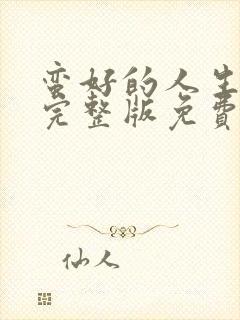 蛮好的人生
完整版免費
仙人